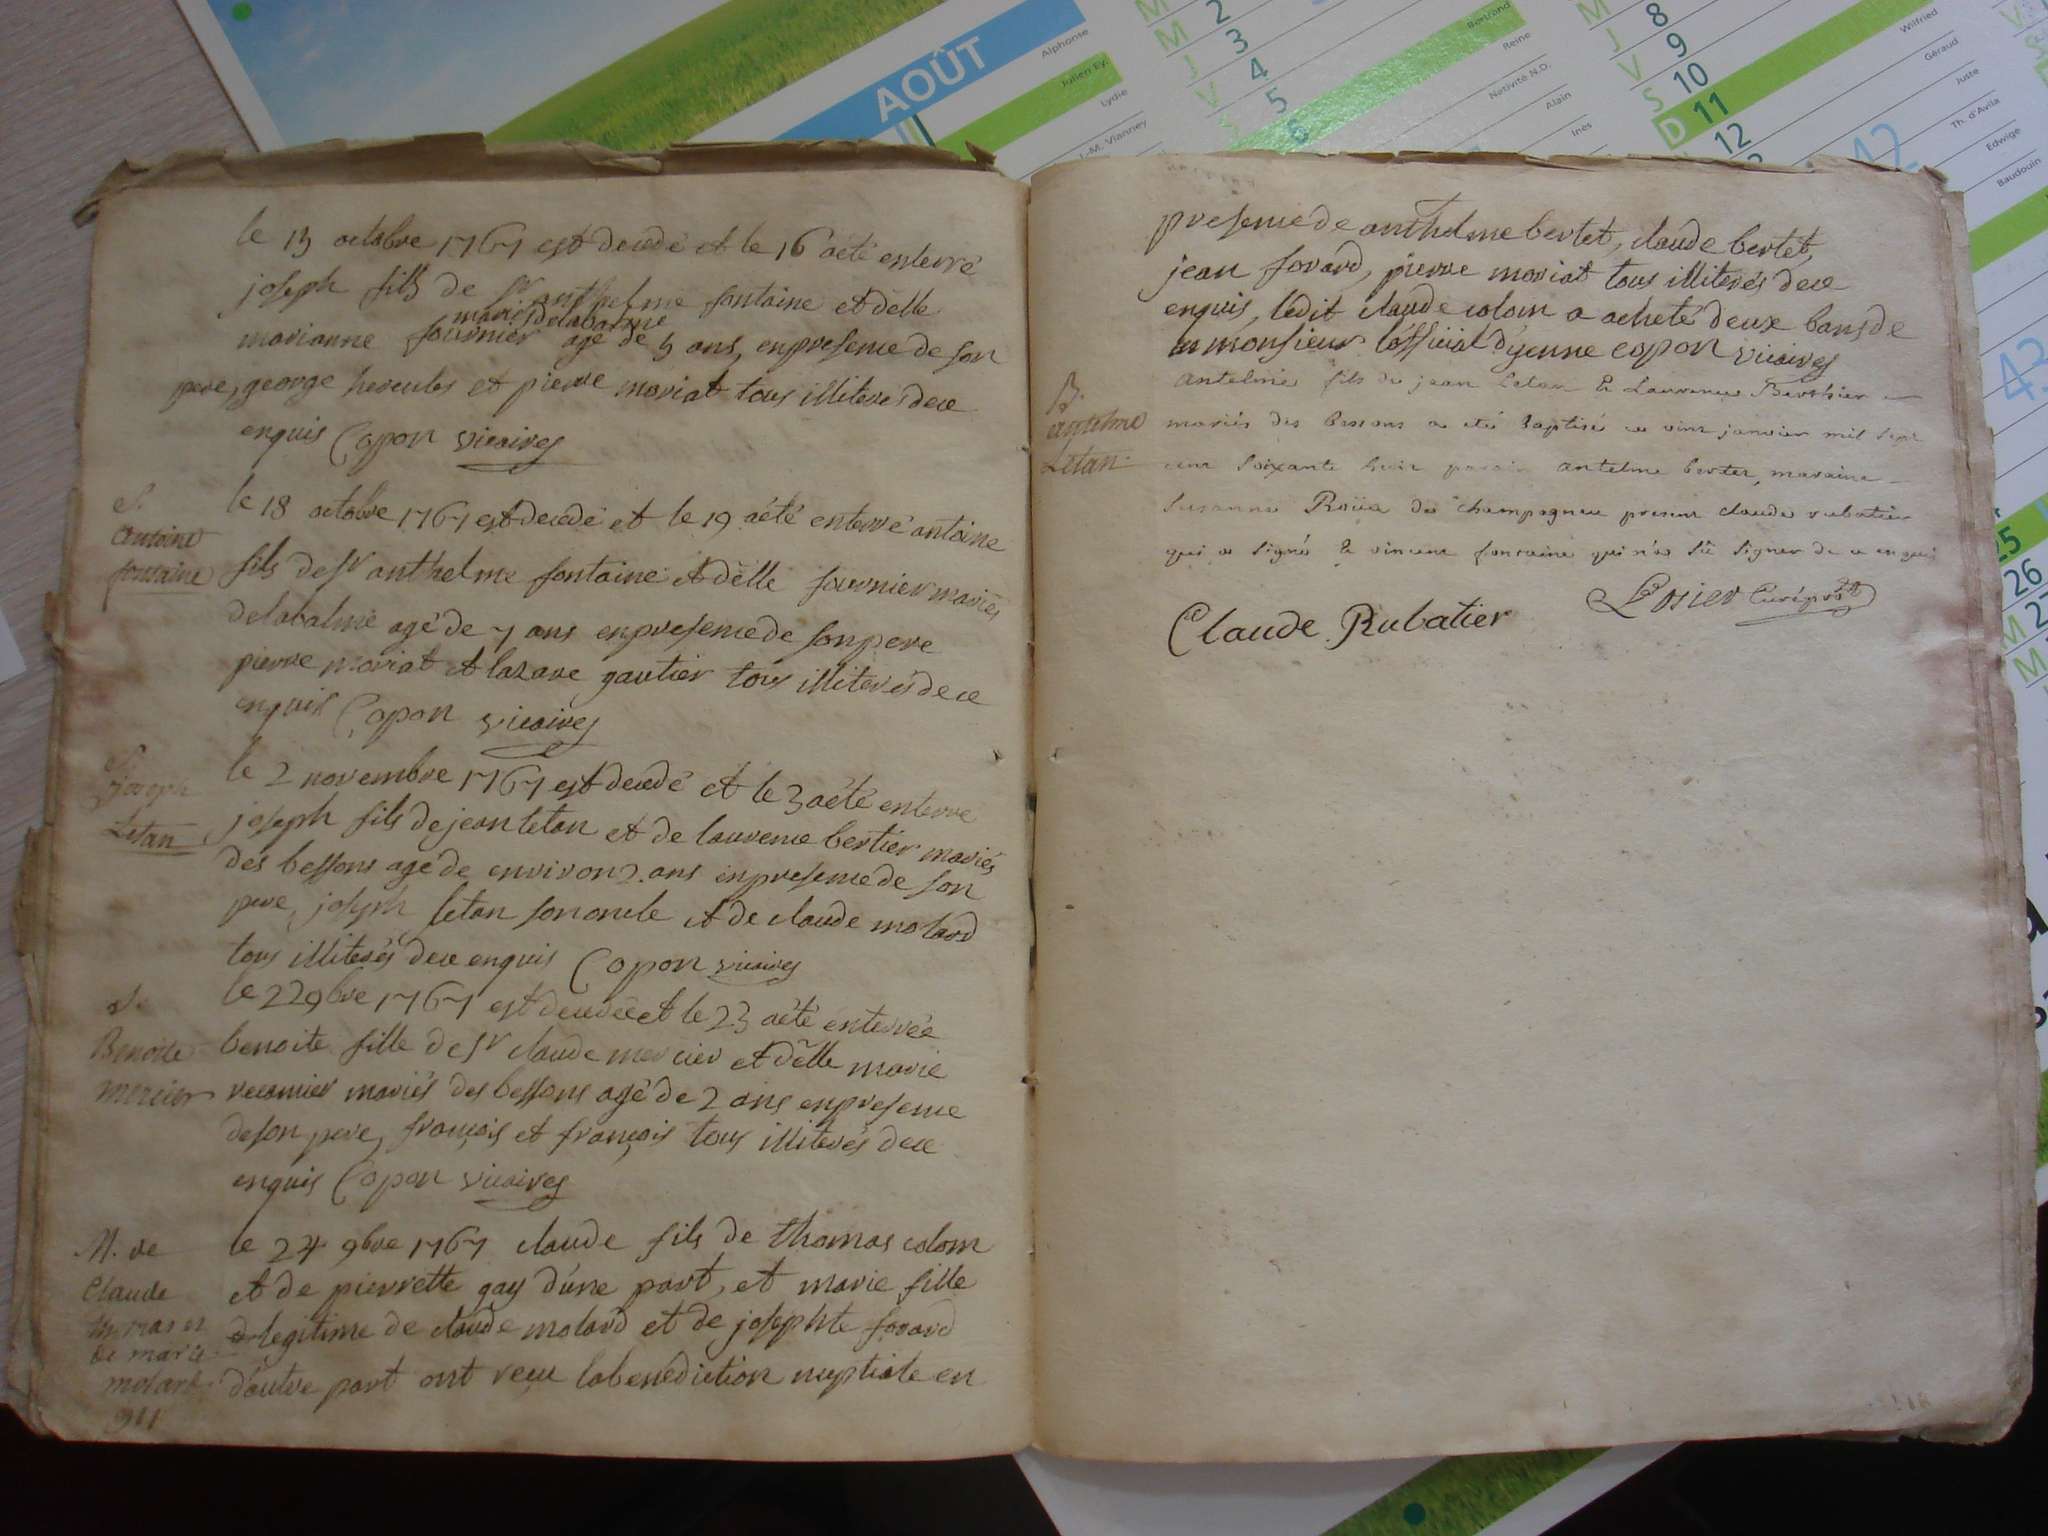 AOÛT
Alphonse
Julien Ey.
Lydie
J.-M. Vianney
M 2
M 3
J 4
V 5
6
Bertrand
Reine
Nativité N.D.
Alain
Inès
M 8
J 9
V 10
S 11
D 12
Wilfried
Géraud
Juste
Th. d'Avila
Edwige
Baudouin
42
43
25
26
27
M
M
le 15 octobre 1767 est decedé et le 16 aété enterré
joseph fils de Sr anthelme fontaine et delle
mariés delabalme
marianne fournier agé de 5 ans, enpresence de son
pere, george hercules et pierre moriat tous illiterés dece
enquis Copon vicaires
S.
Antoine
fontaine
le 18 octobre 1767 est decedé et le 19 aété enterré antoine
fils de Sr anthelme fontaine et delle fournier mariés
delabalme agé de 7 ans enpresence de son pere
pierre moriat et lazare gautier tous illiterés de ce
enquis Copon vicaires
S.
Joseph
Letan
le 2 novembre 1767 est decedé et le 3 aété enterré
joseph fils de jean letan et de laurence bertier mariés
des bessons agé de environ 2 ans enpresence de son
pere, joseph letan son oncle et de claude molard
tous illiterés dece enquis Copon vicaires
Benoite
mercier
le 22 9bre 1767 est decedée et le 23 aété enterrée
benoite fille de Sr claude mercier et delle marie
recamier mariés des bessons agé de 2 ans enpresence
de son pere, françois et françois tous illiterés dece
enquis Copon vicaires
M. de
Claude
thomas et
de marie
molard
911
le 24 9bre 1767 claude fils de thomas colom
et de pierrette gay d'une part, et marie fille
legitime de claude molard et de josephte forard
d'autre part ont reçu la benediction nuptiale en
presence de anthelme bertet, claude bertet,
jean forard, pierre moriat tous illiterés dece
enquis, ledit claude colom a acheté deux bans de
monsieur l'official d'yenne copon vicaires
B.
antelme
Letan
Antelme fils de jean Letan & Laurence Berthier
mariés des bessons a eté baptisé ce vint janvier mil sept
cent soixante huit parain antelme berter, maraine
Susanne Roüa de champagneu present claude rubatier
qui a signé & vincent fontaine qui n'a sû signer de ce enquis
Claude Rubatier
Losier Curé